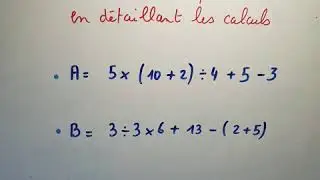 en détaillant les calculs
• A = 5 × (10 + 2) ÷ 4 + 5 - 3
• B = 3 ÷ 3 × 6 + 13 - (2 + 5)